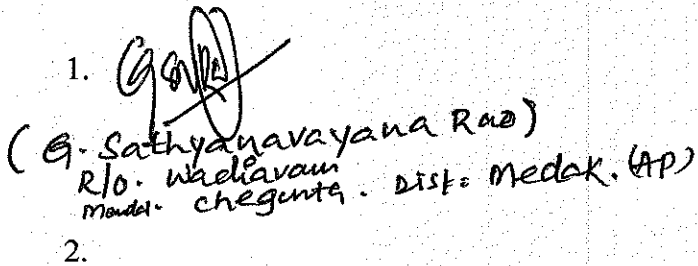 1.
(G. Sathyanarayana Rao)
R/o. Wadiavam
Mandal. Chegunta. Dist: Medak. (AP)
2.